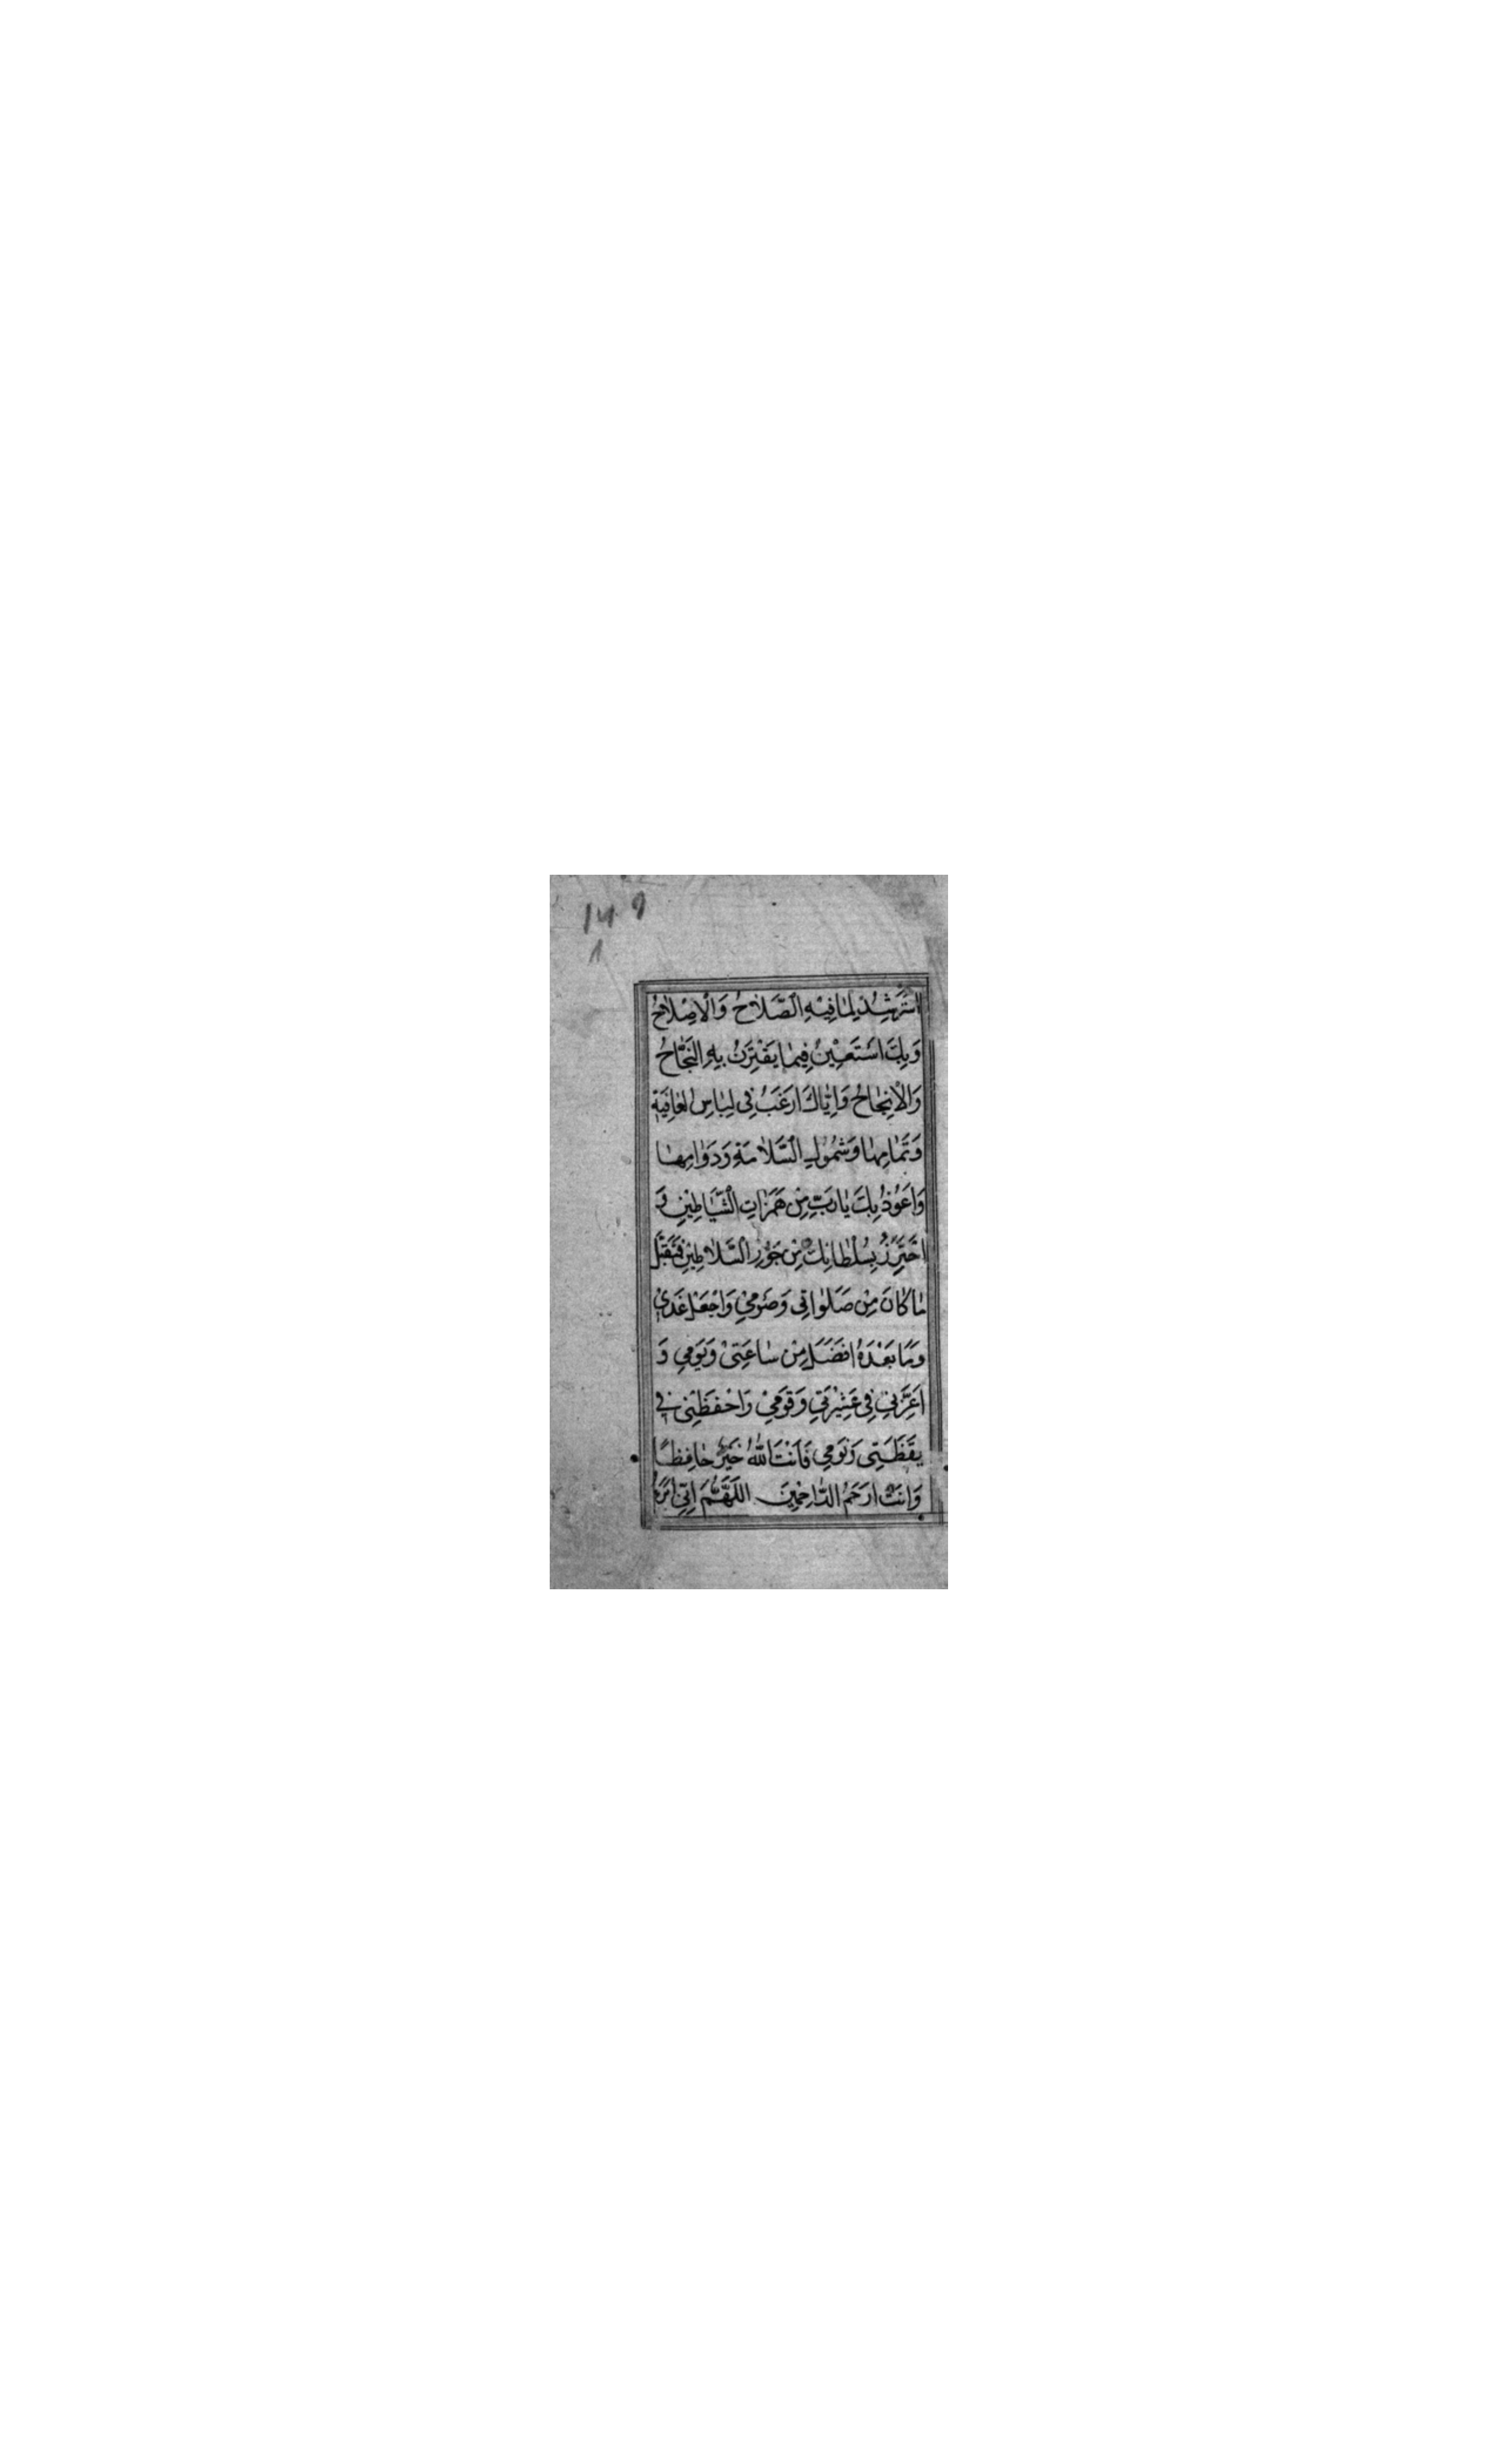 اَسْتَرْشِدُ لِمٰا فِيْهِ الصَّلاٰحُ وَالْاِصْلاٰحُ
وَبِكَ اَسْتَعِيْنُ فِيمٰا يَقْتَرِنُ بِهِ النَّجٰاحُ
وَالْاِنْجٰاحُ وَاِيّٰاكَ اَرْغَبُ فِى لِبٰاسِ الْعٰافِيَةِ
وَتَمٰامِهٰا وَشُمُولِ السَّلاٰمَةِ وَدَوٰامِهٰا
وَاَعُوْذُ بِكَ يٰا رَبِّ مِنْ هَمَزٰاتِ الشَّيٰاطِيْنِ وَ
اَحْتَرِزُ بِسُلْطٰانِكَ مِنْ جَوْرِ السَّلاٰطِيْنِ فَتَقَبَّلْ
مٰا كٰانَ مِنْ صَلَوٰاتِى وَصَوْمِيْ وَاجْعَلْ غَدِيْ
وَمٰا بَعْدَهُ اَفْضَلَ مِنْ سٰاعَتِىْ وَيَوْمِي وَ
اَعِزَّنِي فِي عَشِيْرَتِي وَقَوْمِيْ وَاحْفَظْنِى فِي
يَقَظَتِى وَنَوْمِي فَاَنْتَ اللّٰهُ خَيْرٌ حٰافِظًا
وَاَنْتَ اَرْحَمُ الرّٰاحِمِيْنَ اَللّٰهُمَّ اِنِّي اَبْرَءُ